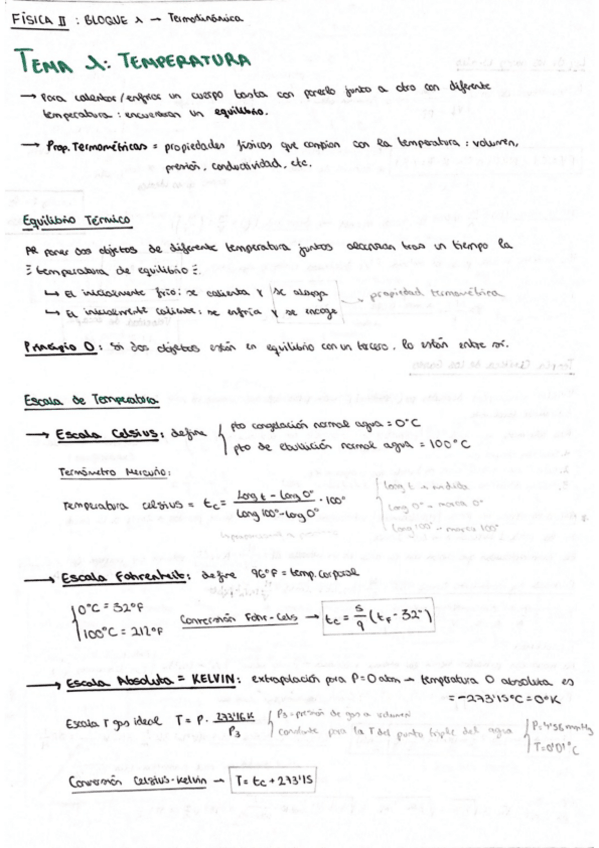 FÍSICA II : BLOQUE 1 → Termodinámica
TEMA 1: TEMPERATURA
→ Para calentar/enfriar un cuerpo basta con ponerlo junto a otro con diferente
temperatura : encuentran un equilibrio.
→ Prop. Termométricas = propiedades físicas que cambian con la temperatura : volumen,
presión, conductividad, etc.
Equilibrio Térmico
Al poner dos objetos de diferente temperatura juntos alcanzan tras un tiempo la
temperatura de equilibrio
↳ El inicialmente frío: se calienta y se alarga → propiedad termométrica
↳ El inicialmente caliente: se enfría y se encoge
Principio 0: si dos objetos están en equilibrio con un tercero, lo están entre sí.
Escala de Temperatura
→ Escala Celsius: define { pto congelación normal agua = 0°C
pto de ebullición normal agua = 100°C
Termómetro Mercurio:
Temperatura celsius = tc = (Long t - Long 0°) / (Long 100° - Long 0°) · 100°
{ Long t → medida
Long 0° → marca 0°
Long 100° → marca 100°
→ Escala Fahrenheit: define 96°F = temp. corporal
{ 0°C = 32°F
100°C = 212°F
Conversión Fahr-Cels → tc = 5/9 (tF - 32°)
→ Escala Absoluta = KELVIN: extrapolación para P=0 atm → temperatura 0 absoluta es
= -273'15°C = 0°K
Escala T gas ideal T = P · 273'16K / P3 { P3 = presión de gas a volumen
constante para la T del punto triple del agua { P=4'58 mmHg
T=0'01°C
Conversión Celsius-Kelvin → T = tc + 273'15